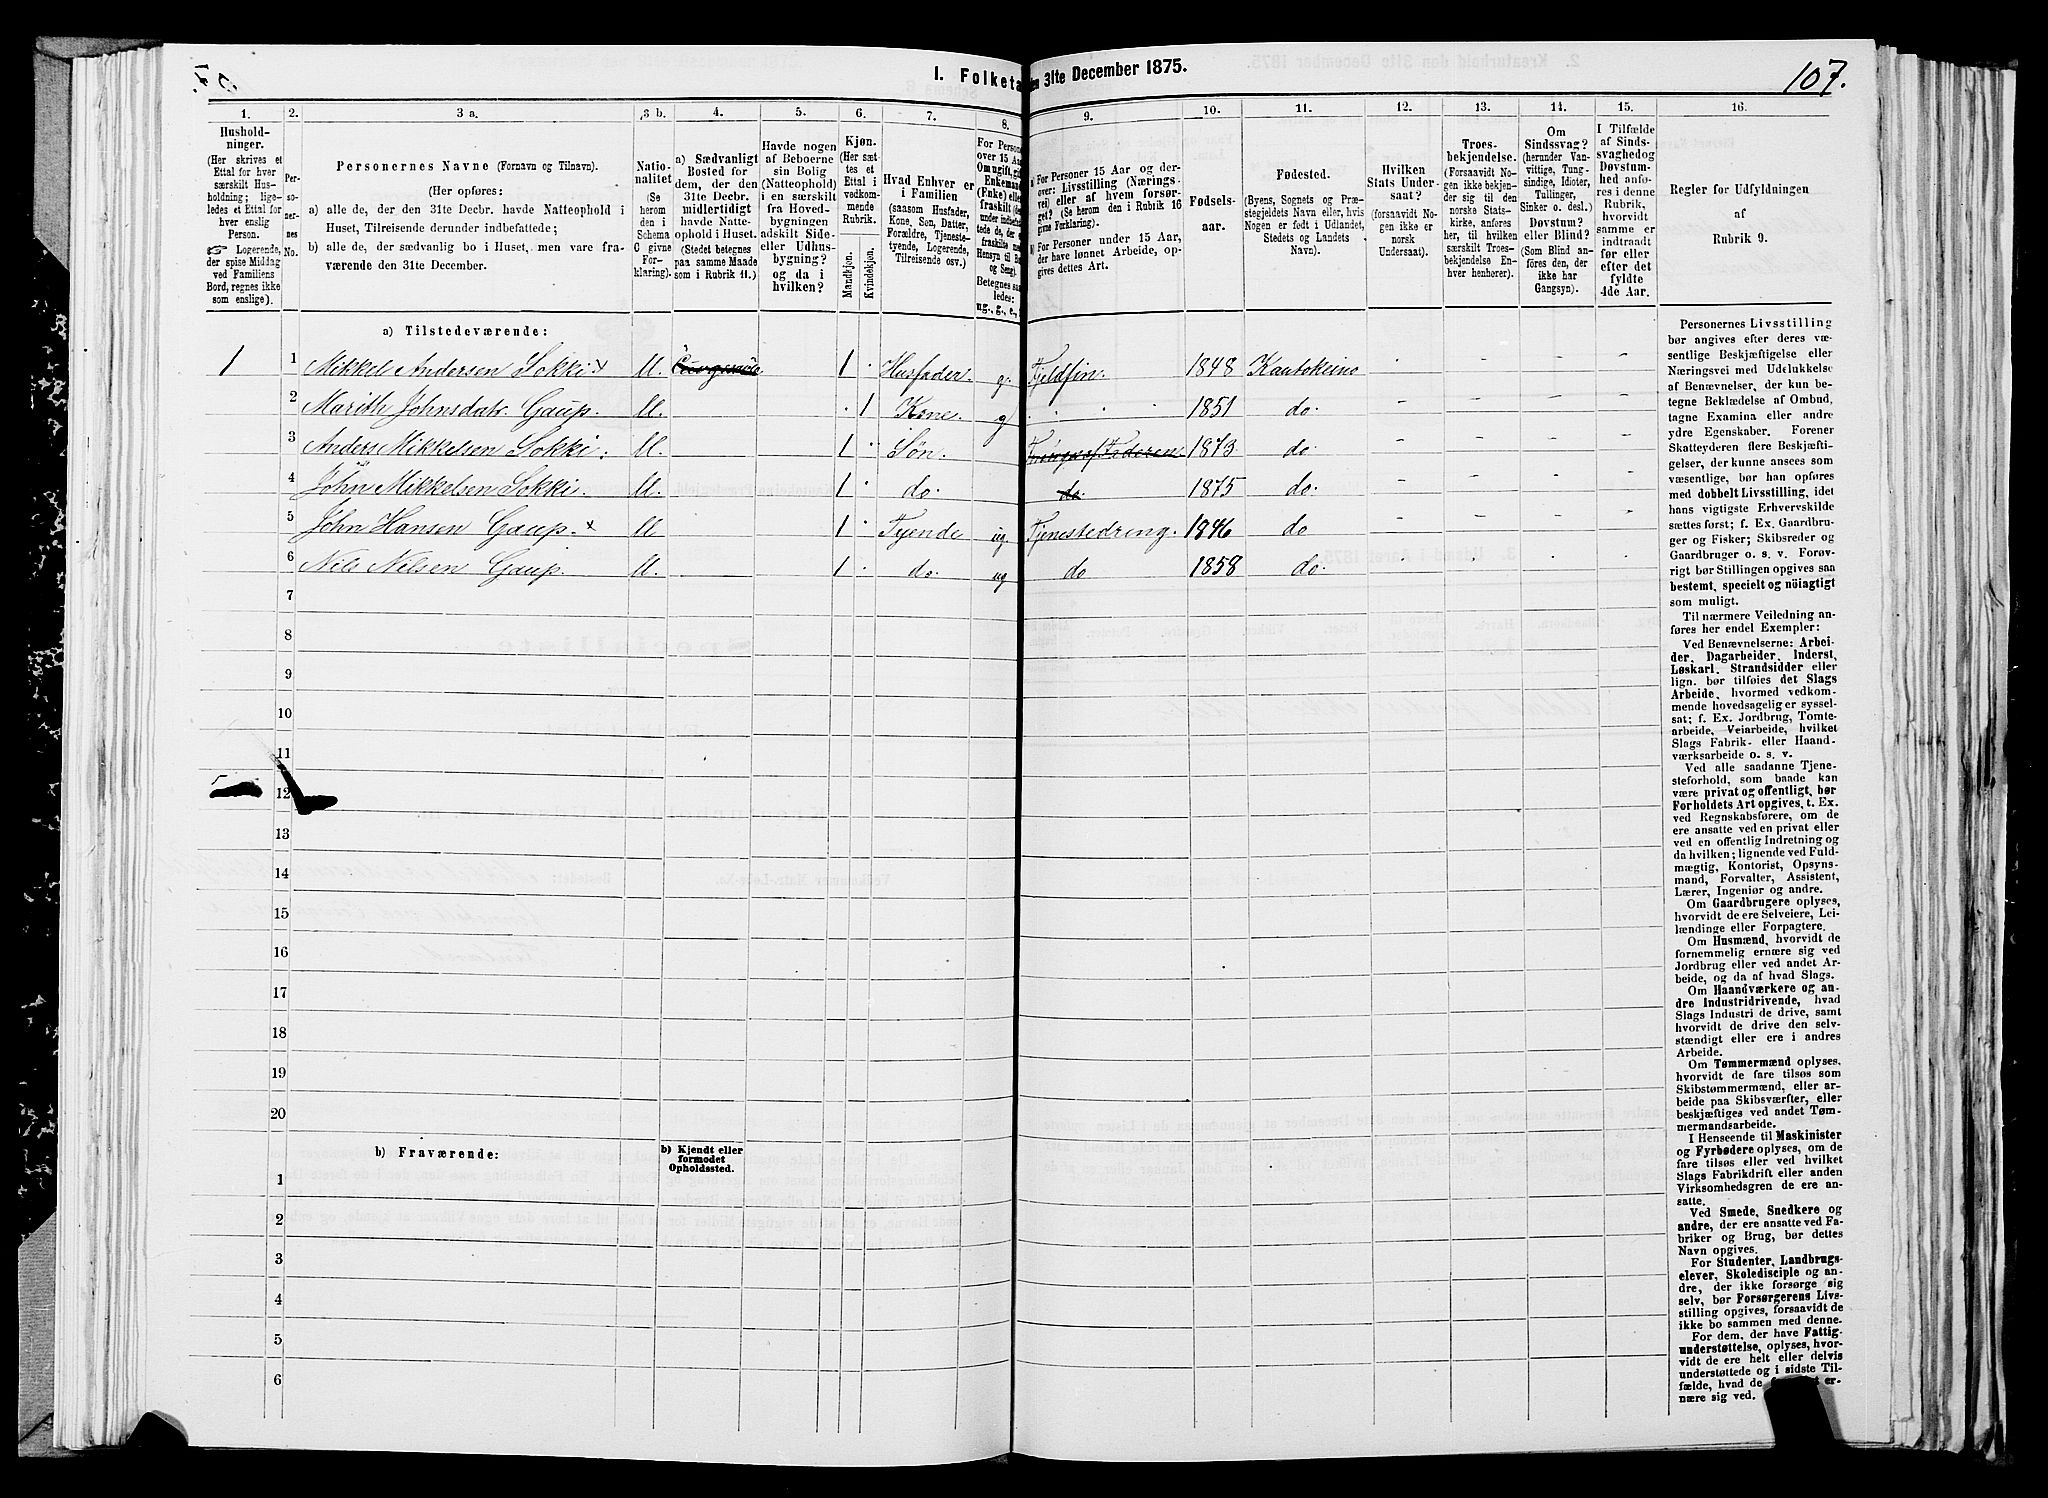 I. Folketæ
den 31te December 1875.
107.
1.
Hushold-
ninger.
(Her skrives et
Ettal for hver
særskilt Hus-
holdning; lige-
ledes et Ettal for
hver enslig
Person.
☞ Logerende,
der spise Middag
ved Familiens
Bord, regnes ikke
som enslige).
2.
Per-
so-
ner-
nes
No.
3 a.
Personernes Navne (Fornavn og Tilnavn).
(Her opføres:
a) alle de, der den 31te Decbr. havde Natteophold i
Huset, Tilreisende derunder indbefattede;
b) alle de, der sædvanlig bo i Huset, men vare fra-
værende den 31te December.
3 b.
Natio-
nalitet
(Se
herom
den i
Schema
C givne
For-
klaring).
4.
a) Sædvanligt
Bosted for
dem, der den
31te Decbr.
midlertidigt
havde Natte-
ophold i Huset.
(Stedet betegnes
paa samme Maade
som i Rubrik 11.)
5.
Havde nogen
af Beboerne
sin Bolig
(Natteophold)
i en særskilt
fra Hoved-
bygningen
adskilt Side-
eller Udhus-
bygning?
og da i
hvilken?
6.
Kjøn.
(Her sæt-
tes et
Ettal i
vedkom-
mende
Rubrik.
Mandkjøn.
Kvindekjøn.
7.
Hvad Enhver er
i Familien
(saasom Husfader,
Kone, Søn, Datter,
Forældre, Tjeneste-
tyende, Logerende,
Tilreisende osv.)
8.
9.
a) For Personer 15 Aar og der-
over: Livsstilling (Nærings-
vei) eller af hvem forsør-
get? (Se herom den i Rubrik 16
givne Forklaring).
b) For Personer under 15 Aar,
der have lønnet Arbeide, op-
gives dettes Art.
10.
Fødsels-
aar.
11.
Fødested.
(Byens, Sognets og Præ-
stegjeldets Navn eller, hvis
Nogen er født i Udlandet,
Stedets og Landets
Navn).
12.
Hvilken
Stats Under-
saat?
(forsaavidt No-
gen ikke er
norsk
Undersaat).
13.
Troes-
bekjendelse.
(Forsaavidt No-
gen ikke bekjen-
der sig til den
norske Stats-
kirke, anføres
her, til hvilken
særskilt Troes-
bekjendelse En-
hver henhører).
14.
Om
Sindssvag?
(herunder Van-
vittige, Tung-
sindige, Idioter,
Tullinger,
Sinker o. desl.)
Døvstum?
eller Blind?
(Som Blind an-
føres den, der
ikke har
Gangsyn).
15.
I Tilfælde
af Sinds-
svaghed og
Døvstum-
hed anfø-
res i denne
Rubrik,
hvorvidt
samme er
indtraadt
før eller
efter det
fyldte
4de Aar.
16.
Regler for Udfyldningen
af
Rubrik 9.
a) Tilstedeværende:
1 1 Mikkel Andersen Sokki x M. 1 Husfader. g. Fjeldfin. 1848 Kautokeino
2 Marith Johnsdatr. Gaup. M. 1 Kone. g 1851 do.
3 Anders Mikkelsen Sokki. M. 1 Søn. 1873 do
4 John Mikkelsen Sokki. M. 1 do. do. 1875 do.
5 John Hansen Gaup. x M 1 Tyende ug. Tjenestedreng. 1846 do
6 Nils Nilsen Gaup. M. 1 do. ug do 1858 do.
7
8
9
10
11
12
13
14
15
16
17
18
19
20
b) Fraværende:
b) Kjendt eller
formodet
Opholdssted.
1
2
3
4
5
6
Personernes Livsstilling
bør angives efter deres væ-
sentlige Beskjæftigelse eller
Næringsvei med Udelukkelse
af Benævnelser, der kun be-
tegne Beklædelse af Ombud,
tagne Examina eller andre
ydre Egenskaber. Forener
Skatteyderen flere Beskjæfti-
gelser, der kunne ansees som
væsentlige, bør han opføres
med dobbelt Livsstilling, idet
hans vigtigste Erhvervskilde
sættes først; f. Ex. Gaardbru-
ger og Fisker; Skibsreder og
Gaardbruger o. s. v. Forøv-
rigt bør Stillingen opgives saa
bestemt, specielt og nöiagtigt
som muligt.
Til nærmere Veiledning an-
føres her endel Exempler:
Ved Benævnelserne: Arbei-
der, Dagarbeider, Inderst,
Løskarl, Strandsidder eller
lign. bør tilføies det Slags
Arbeide, hvormed vedkom-
mende hovedsagelig er syssel-
sat; f. Ex. Jordbrug, Tomte-
arbeide, Veiarbeide, hvilket
Slags Fabrik- eller Haand-
værksarbeide o. s. v.
Ved alle saadanne Tjene-
steforhold, som baade kan
være privat og offentligt, bør
Forholdets Art opgives, t. Ex.
ved Regnskabsførere, om de
ere ansatte ved en privat eller
ved en offentlig Indretning og
da hvilken; lignende ved Fuld-
mægtig, Kontorist, Opsyns-
mand, Forvalter, Assistent,
Lærer, Ingeniør og andre.
Om Gaardbrugere oplyses,
hvorvidt de ere Selveiere, Lei-
lændinge eller Forpagtere.
Om Husmænd, hvorvidt de
fornemmelig ernære sig ved
Jordbrug eller ved andet Ar-
beide, og da af hvad Slags.
Om Haandværkere og an-
dre Industridrivende, hvad
Slags Industri de drive, samt
hvorvidt de drive den selv-
stændigt eller ere i andres
Arbeide.
Om Tømmermænd oplyses,
hvorvidt de fare tilsøs som
Skibstømmermænd, eller ar-
beide paa Skibsværfter, eller
beskjæftiges ved andet Tøm-
mermandsarbeide.
I Henseende til Maskinister
og Fyrbødere oplyses, om de
fare tilsøs eller ved hvilket
Slags Fabrikdrift eller anden
Virksomhedsgren de ere an-
satte.
Ved Smede, Snedkere og
andre, der ere ansatte ved Fa-
briker og Brug, bør dettes
Navn opgives.
For Studenter, Landbrugs-
elever, Skoledisciple og an-
dre, der ikke forsørge sig
selv, bør Forsørgerens Livs-
stilling opgives, forsaavidt de
ikke bo sammen med denne.
For dem, der have Fattig-
understøttelse, oplyses, hvor-
vidt de ere helt eller delvis
understøttede og i sidste Til-
fælde, hvad de er-
nære sig ved.